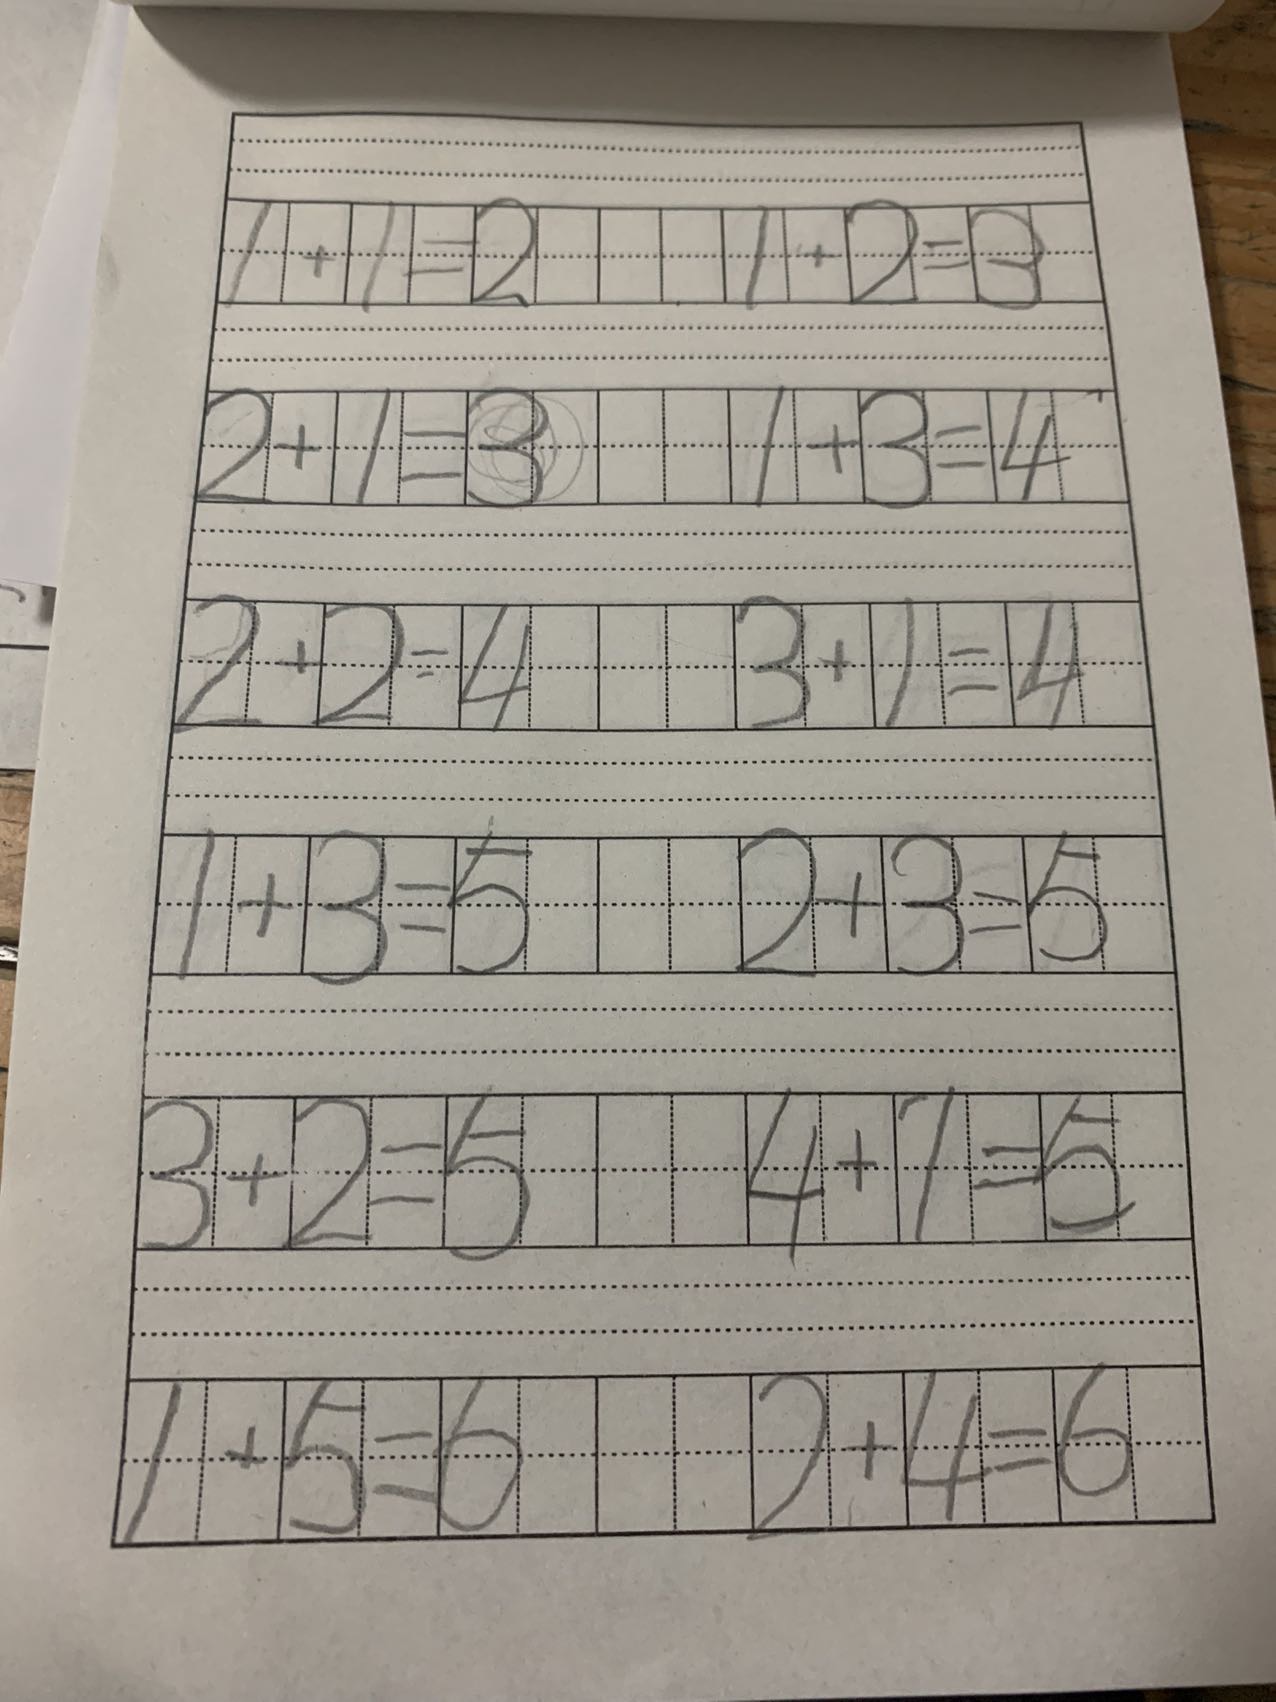 1+1=2 1+2=3
2+1=3 1+3=4
2+2=4 3+1=4
1+3=5 2+3=5
3+2=5 4+1=5
1+5=6 2+4=6